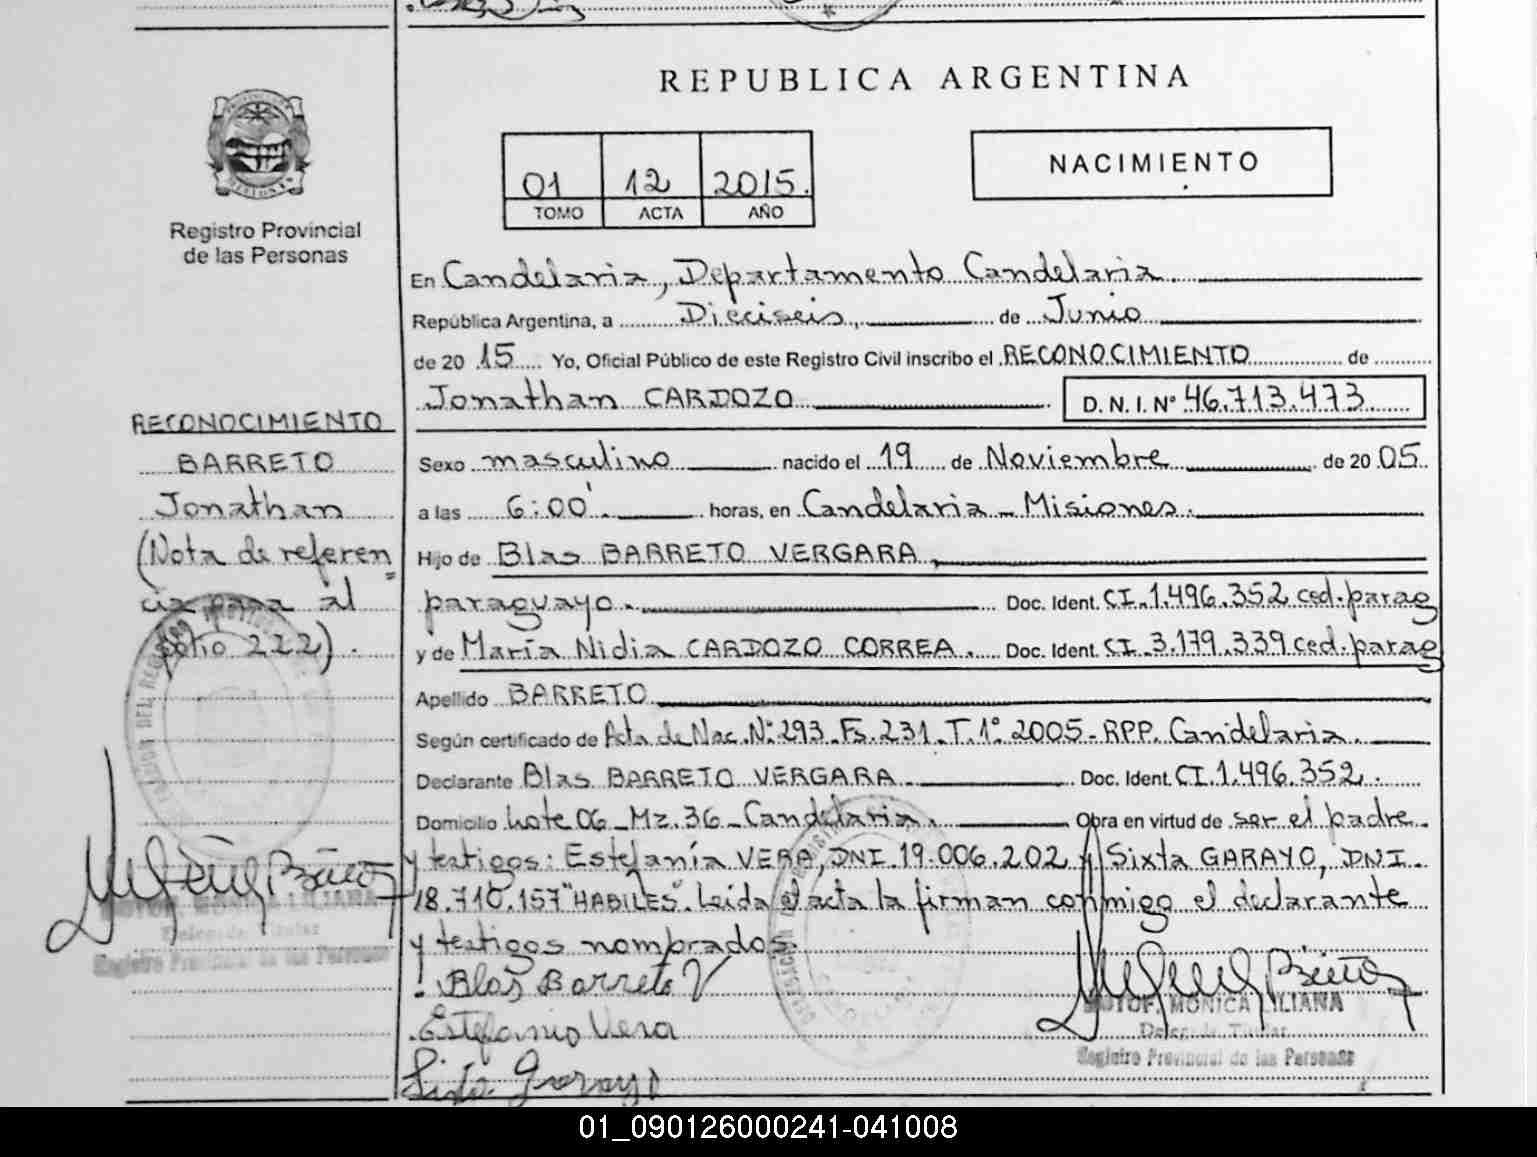 REPUBLICA ARGENTINA
NACIMIENTO
01 12 2015.
TOMO ACTA AÑO
Registro Provincial
de las Personas
En Candelaria, Departamento Candelaria.
República Argentina, a Dieciseis, de Junio
de 20 15 Yo, Oficial Público de este Registro Civil inscribo el RECONOCIMIENTO de
Jonathan CARDOZO D. N. I. N° 46.713.473
RECONOCIMIENTO
BARRETO
Jonathan
(Nota de referen
cia para al
folio 222).
Sexo masculino nacido el 19 de Noviembre de 20 05.
a las 6:00'. horas, en Candelaria - Misiones.
Hijo de Blas BARRETO VERGARA,
paraguayo. Doc. Ident. CI. 1.496.352 ced. parag
y de María Nidia CARDOZO CORREA. Doc. Ident. CI. 3.179.339 ced. parag
Apellido BARRETO
Según certificado de Acta de Nac. N: 293. Fs. 231. T. 1° 2005- RPP. Candelaria.
Declarante Blas BARRETO VERGARA. Doc. Ident. CI. 1.496.352.
Domicilio Lote 06 - Mz. 36 - Candelaria. Obra en virtud de ser el padre
y testigos: Estefanía VERA, DNI. 19.006.202 y Sixta GARAYO, DNI.
18.710.157 "HABILES". Leida el acta la firman conmigo el declarante
y testigos nombrados.
Blas Barreto V
Estefania Vera
Sixta Garayo
MOTOF. MONICA LILIANA
Delegada Titular
Registro Provincial de las Personas
MOTOF. MONICA LILIANA
Delegada Titular
Registro Provincial de las Personas
01_090126000241-041008